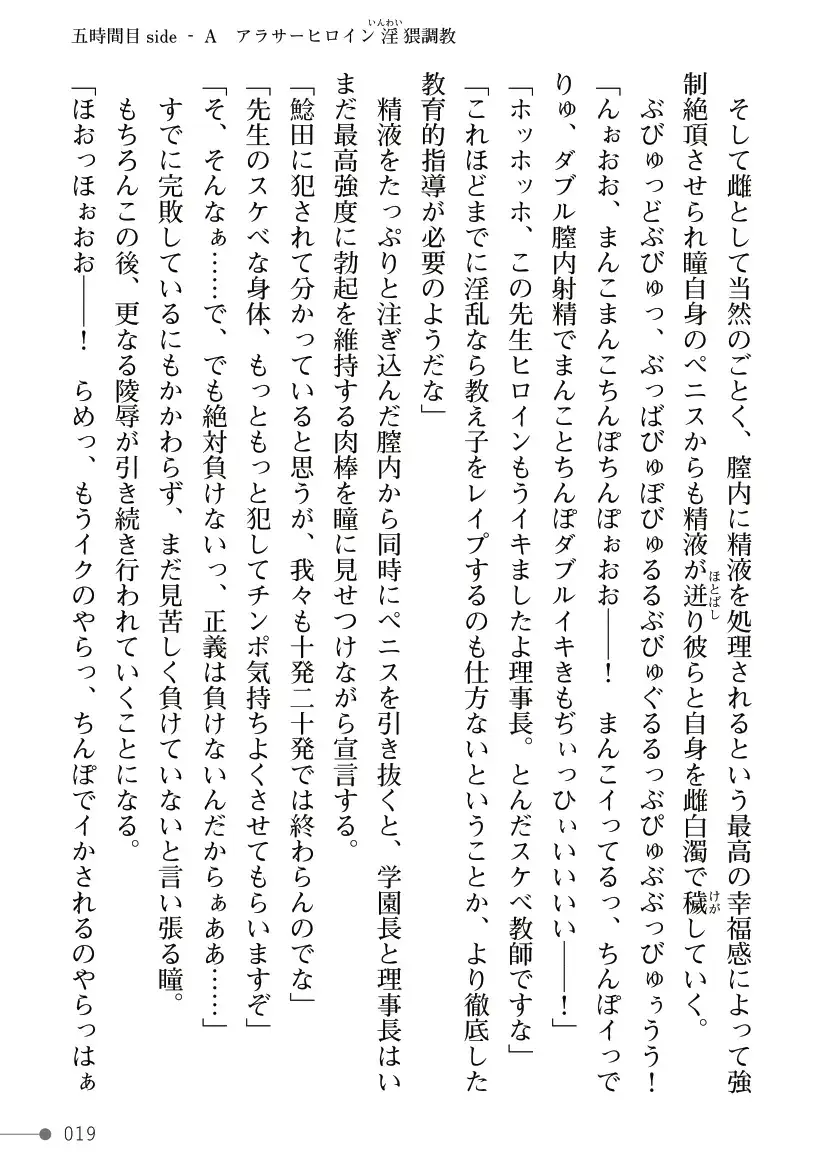 五時間目 side - A　アラサーヒロイン淫猥調教
そして雌として当然のごとく、膣内に精液を処理されるという最高の幸福感によって強
制絶頂させられ瞳自身のペニスからも精液が迸り彼らと自身を雌白濁で穢していく。
ぶびゅっどぶびゅっ、ぶっばびゅぼびゅるるぶびゅぐるるっぶぴゅぶぶっびゅぅうう！
「んぉおお、まんこまんこちんぽちんぽぉおお――！　まんこイってるっ、ちんぽイっで
りゅ、ダブル膣内射精でまんことちんぽダブルイキきもぢぃっひぃいいいい――！」
「ホッホッホ、この先生ヒロインもうイキましたよ理事長。とんだスケベ教師ですな」
「これほどまでに淫乱なら教え子をレイプするのも仕方ないということか、より徹底した
教育的指導が必要のようだな」
精液をたっぷりと注ぎ込んだ膣内から同時にペニスを引き抜くと、学園長と理事長はい
まだ最高強度に勃起を維持する肉棒を瞳に見せつけながら宣言する。
「鯰田に犯されて分かっていると思うが、我々も十発二十発では終わらんのでな」
「先生のスケベな身体、もっともっと犯してチンポ気持ちよくさせてもらいますぞ」
「そ、そんなぁ……で、でも絶対負けないっ、正義は負けないんだからぁああ……」
すでに完敗しているにもかかわらず、まだ見苦しく負けていないと言い張る瞳。
もちろんこの後、更なる陵辱が引き続き行われていくことになる。
「ほおっほぉおお――！　らめっ、もうイクのやらっ、ちんぽでイかされるのやらっはぁ
019